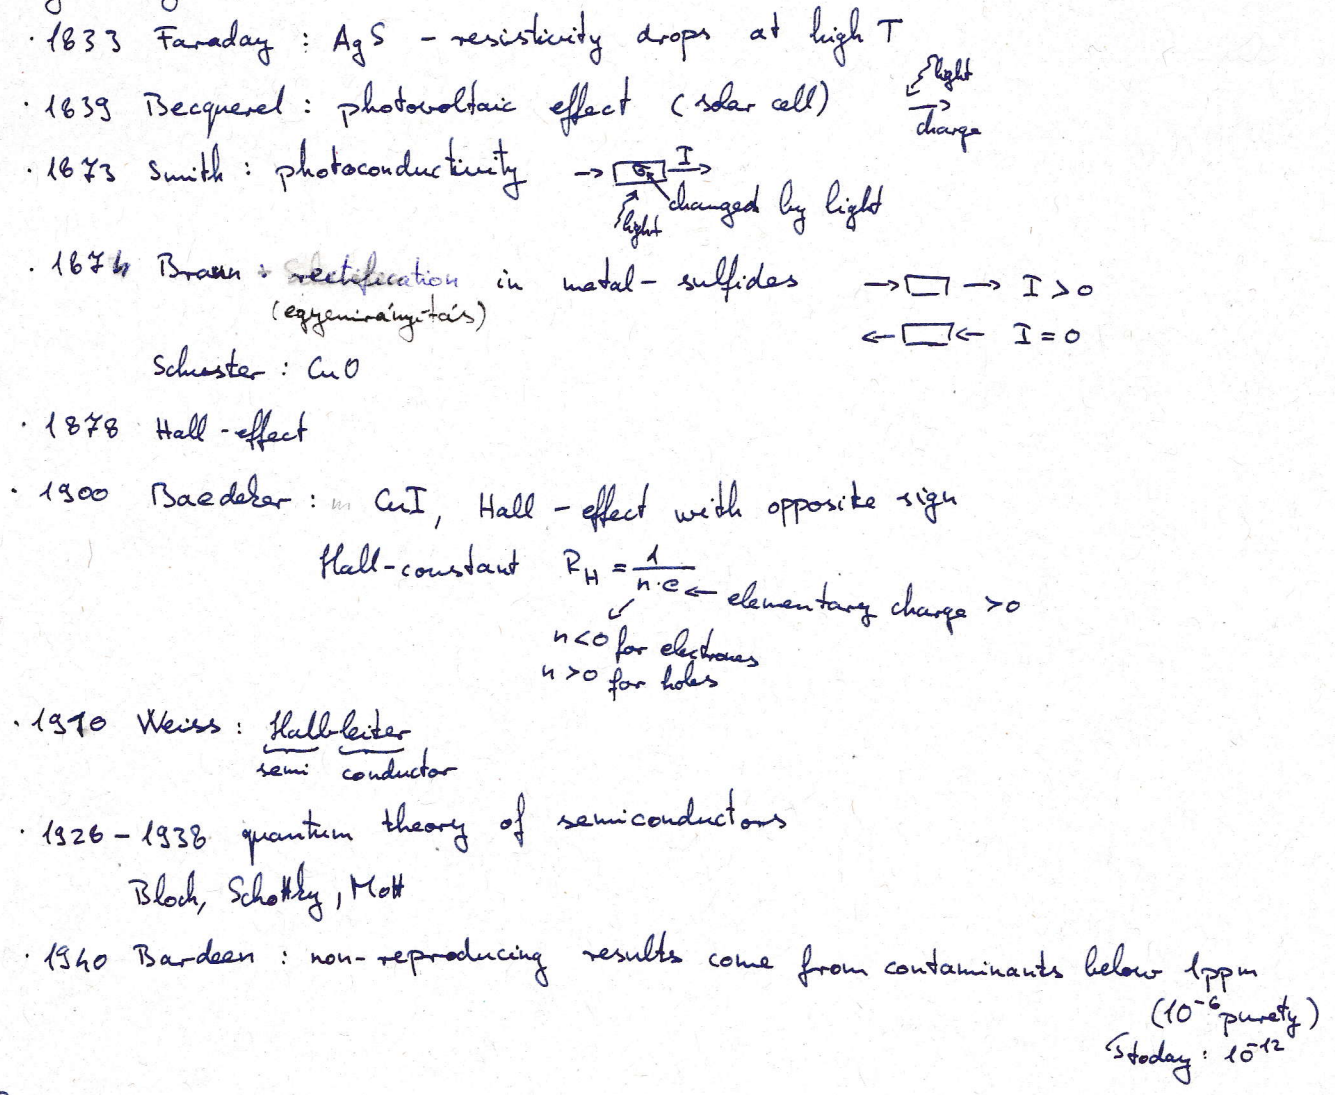 · 1833 Faraday : AgS - resistivity drops at high T
light
· 1839 Becquerel : photovoltaic effect (solar cell)
charge
· 1873 Smith : photoconductivity → σ I →
changed by light
light
· 1874 Braun : rectification in metal-sulfides → → I > 0
(egyenirányítás) ← ← I = 0
Schuster : CuO
· 1878 Hall-effect
· 1900 Baedeker : in CuI, Hall-effect with opposite sign
Hall-constant R_H = 1/(n·e) ← elementary charge > 0
n<0 for electrones
n>0 for holes
· 1910 Weiss : Halbleiter
semi conductor
· 1926-1938 quantum theory of semiconductors
Bloch, Schottky, Mott
· 1940 Bardeen : non-reproducing results come from contaminants below 1ppm
(10⁻⁶ purety)
today: 10⁻¹²